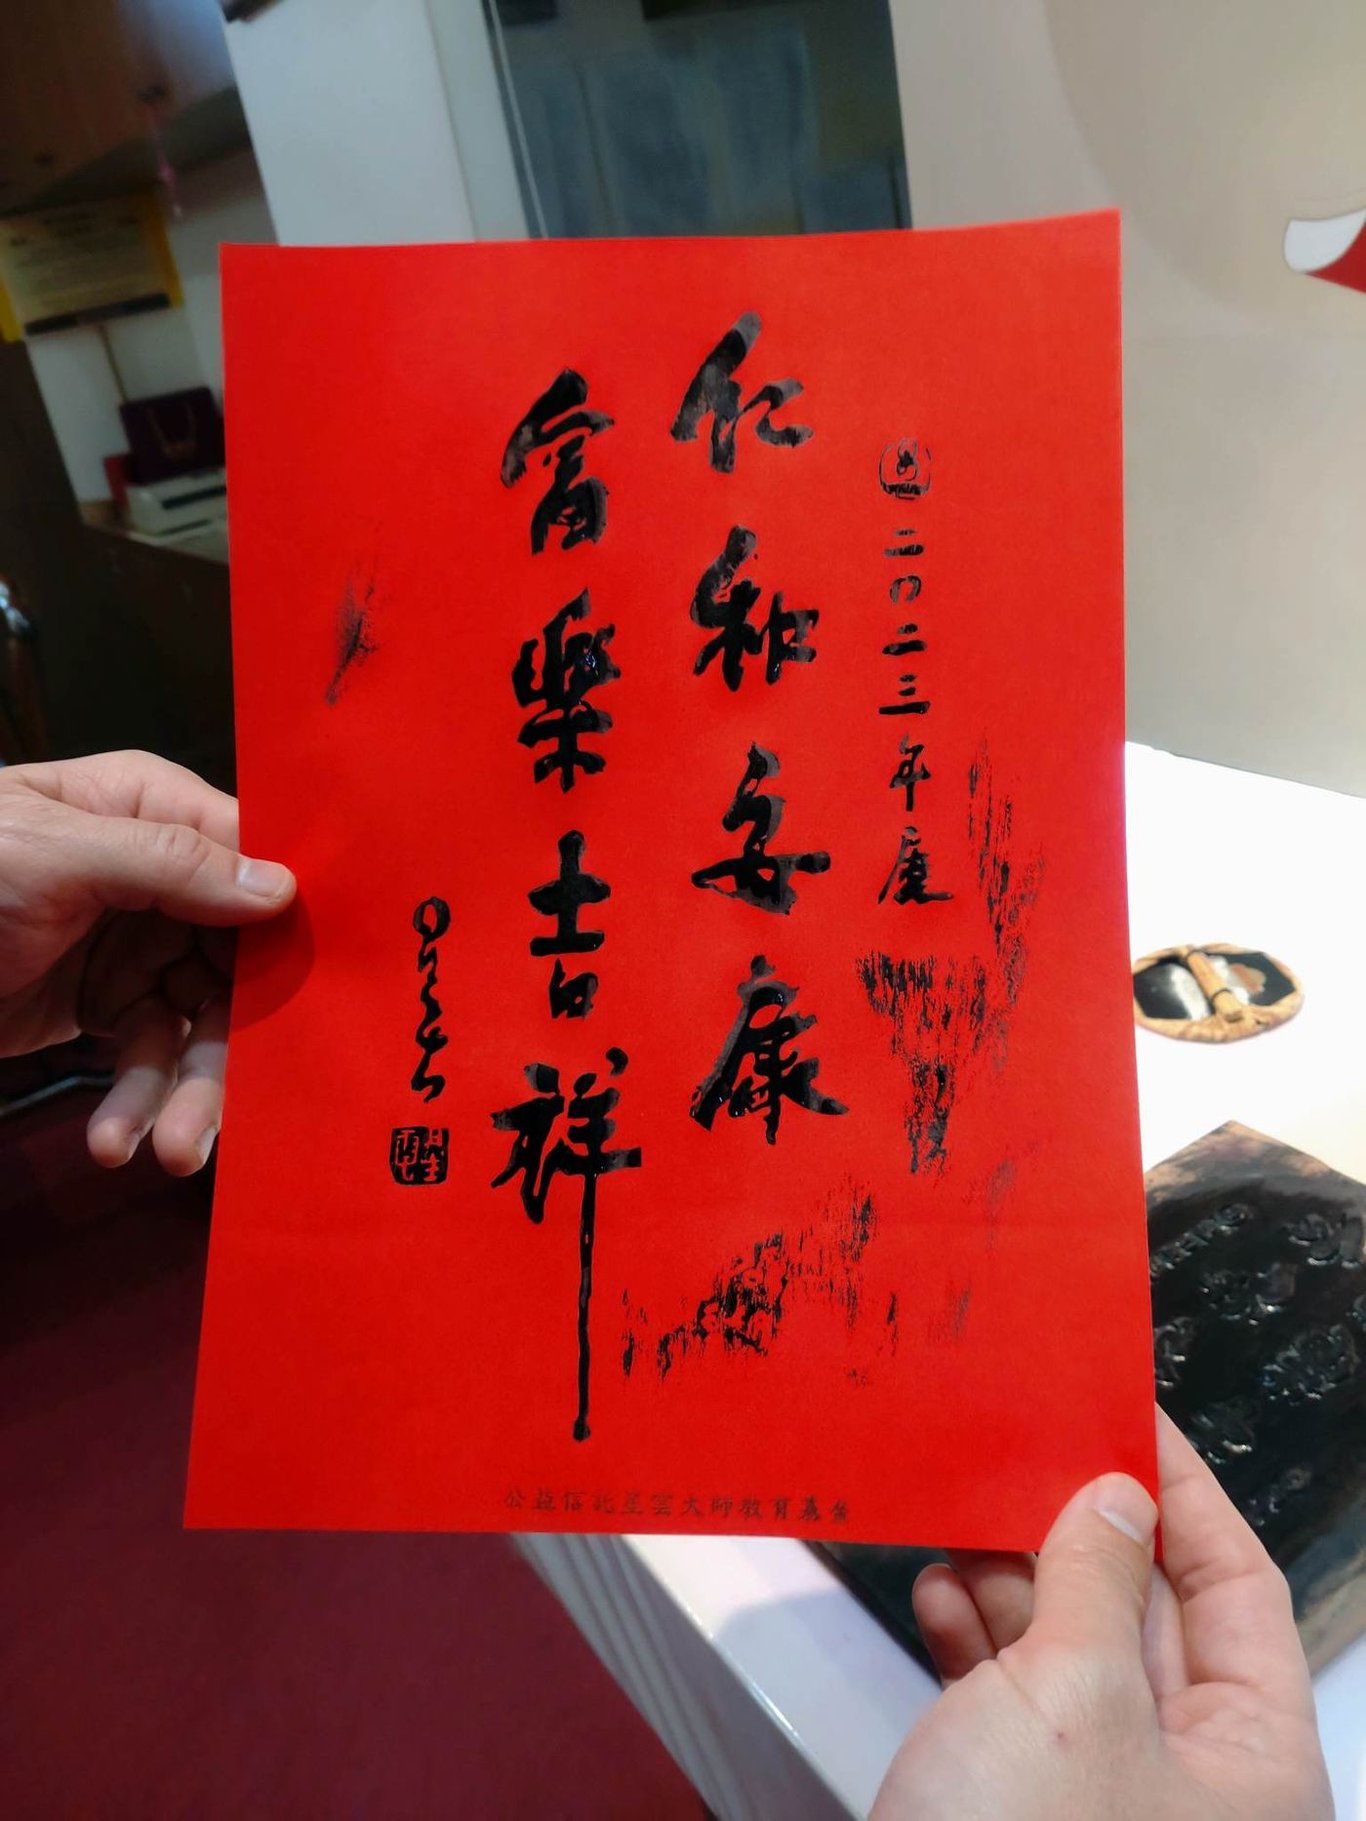 二〇二三年慶
仁和安康
富樂吉祥
星雲
公益信託星雲大師教育基金